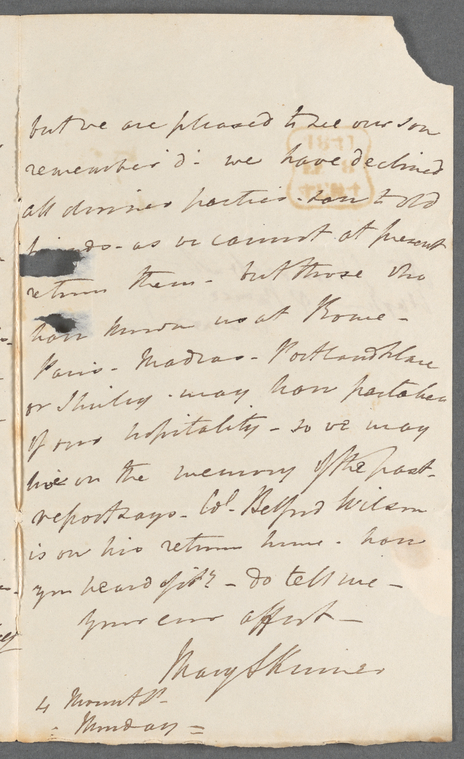 but we are pleased to see our son
remember'd - we have declined
all dinner parties - save to old
friends - as we cannot at present
return them - but those who
have known us at Rome -
Paris - Madras - Portland Place
or Shirley - may have partaken
of our hospitality - so we may
live on the memory of the past -
report says - Col. Belford Wilson
is on his return home - have
you heard of it? - do tell me -
Your ever affect -
Mary Skinner
4 Mount St
- Monday =